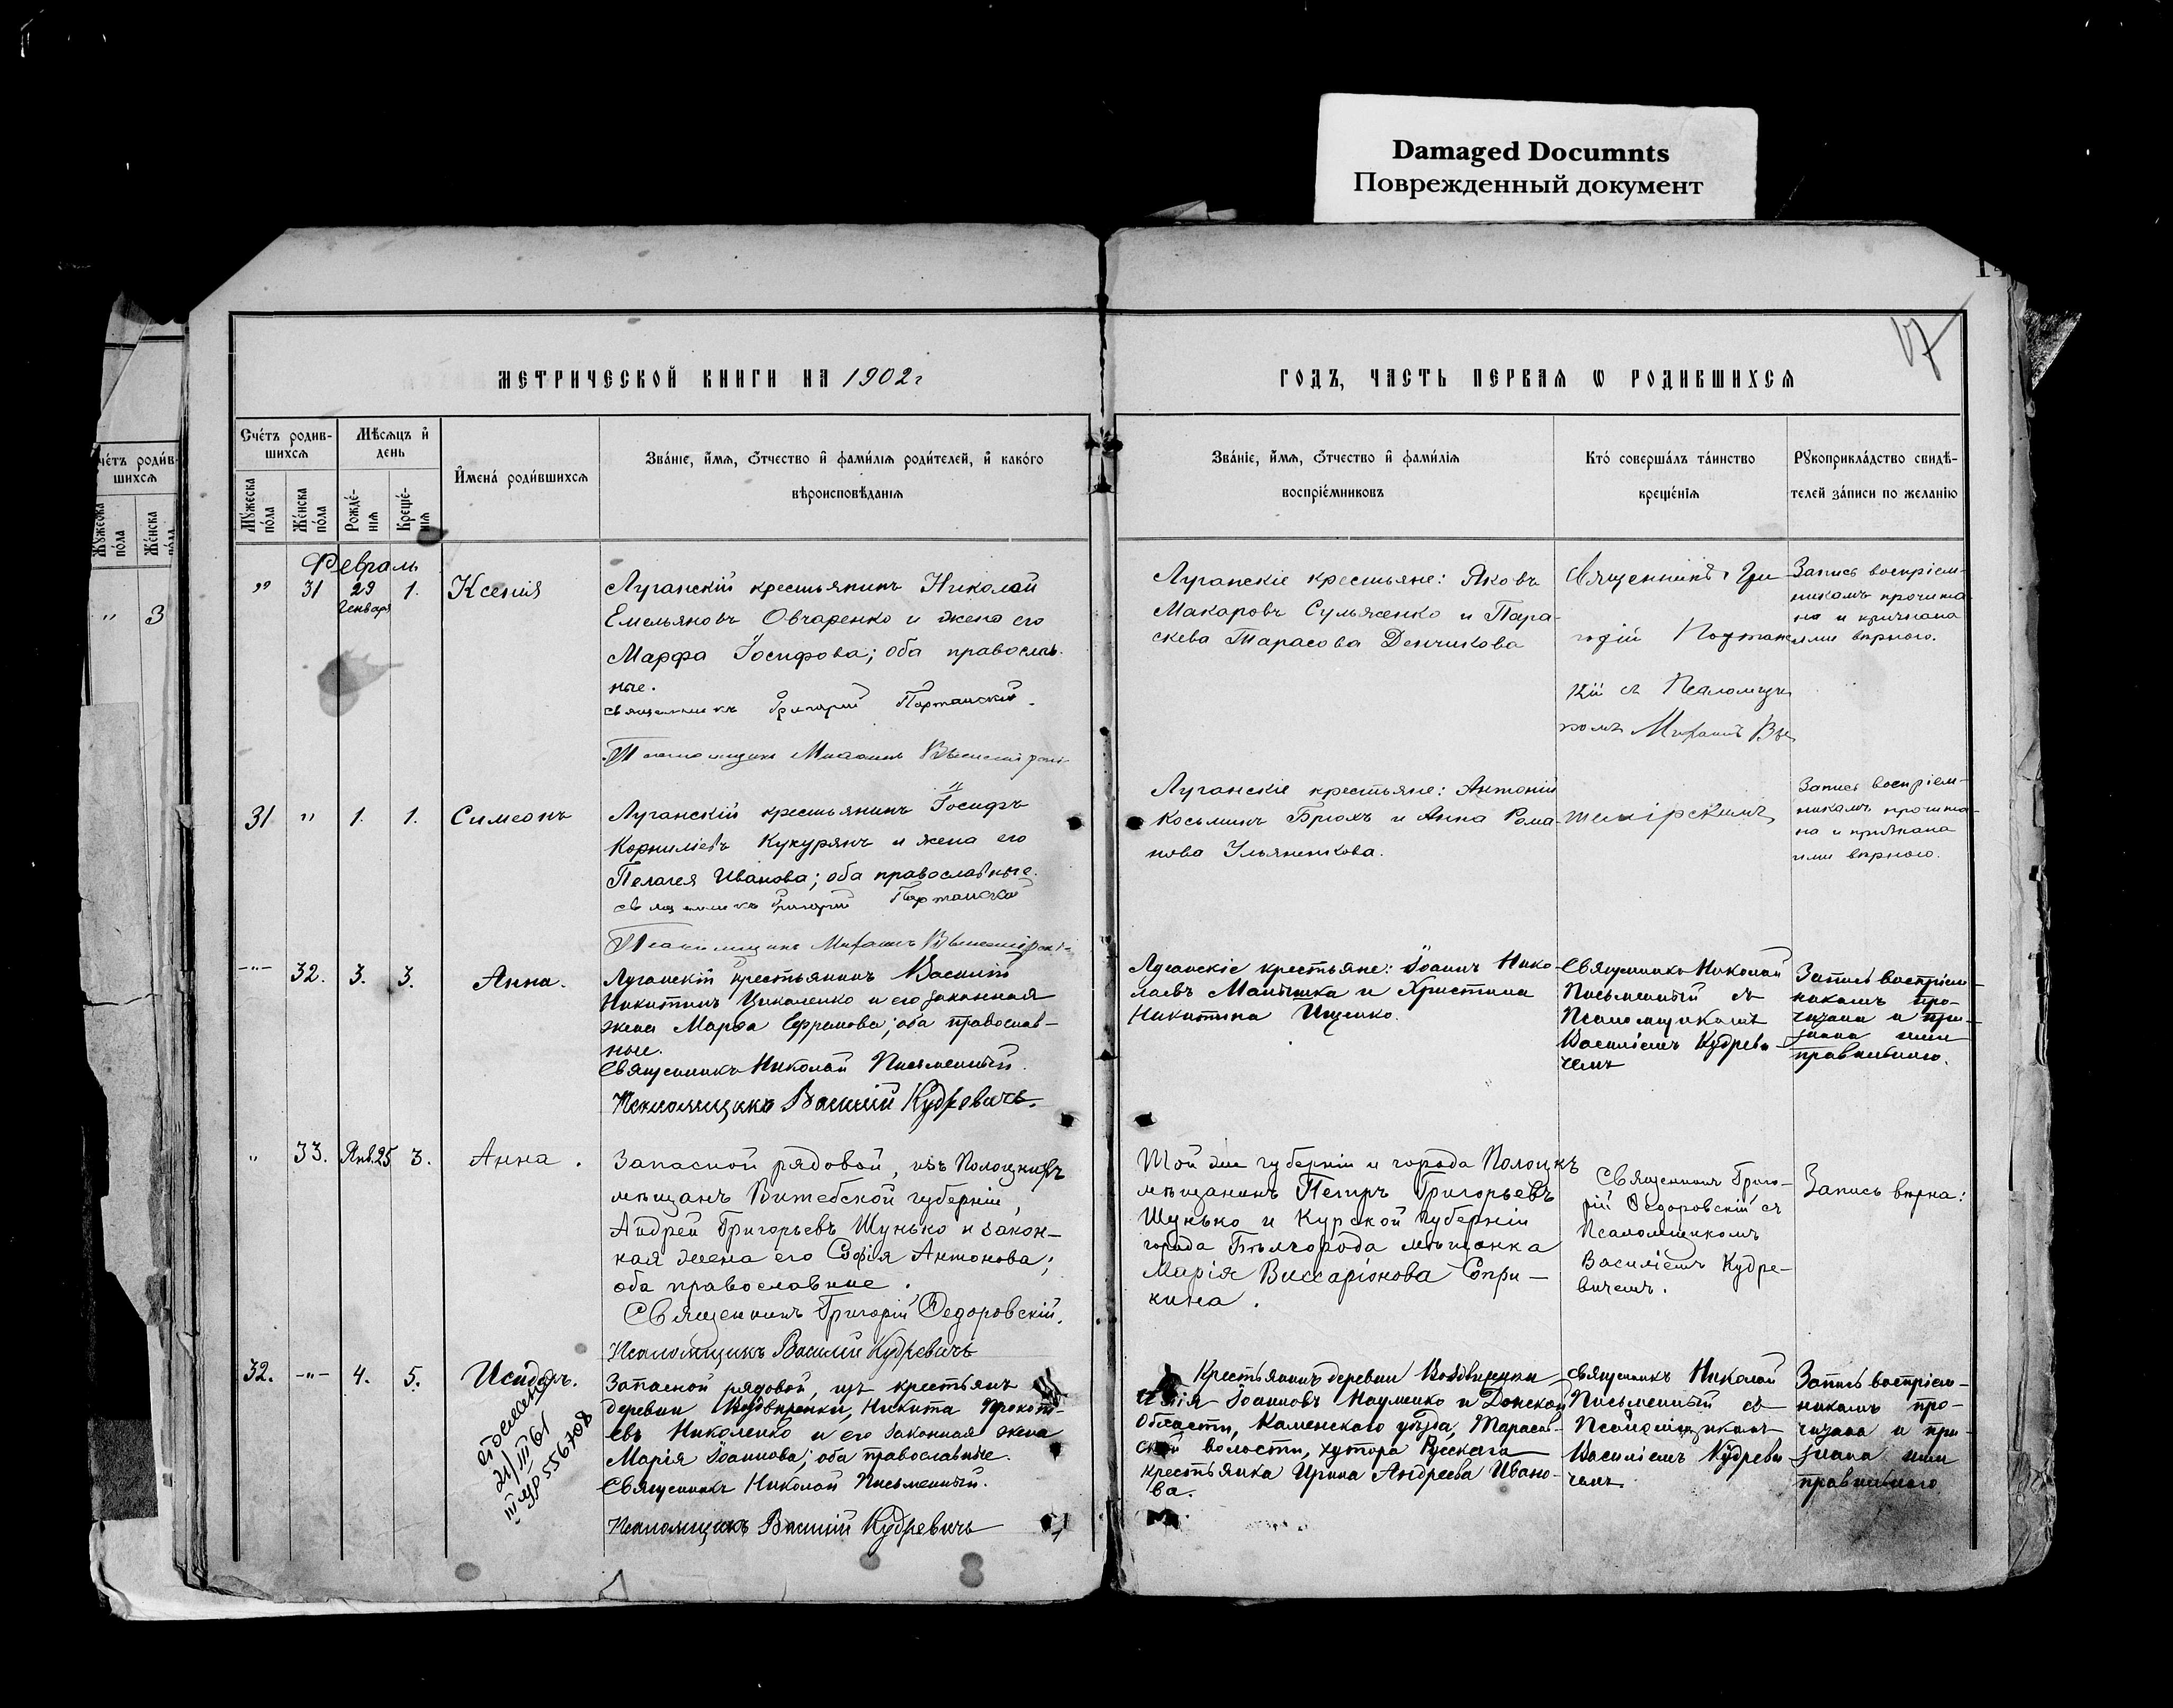 Damaged Documnts
Поврежденный документ
17
МЕТРИЧЕСКОЙ КНИГИ НА 1902 г
ГОДЪ, ЧАСТЬ ПЕРВАЯ Ѡ РОДИВШИХСЯ
Счетъ родив-
шихся
Мѣсяцъ и
день
Мужеска
пола
Женска
пола
Рожде-
нія
Креще-
нія
Имена родившихся
Званіе, имя, отчество и фамилія родителей, и какого
вѣроисповѣданія
Званіе, имя, отчество и фамилія
воспріемниковъ
Кто совершалъ таинство
крещенія
Рукоприкладство свидѣ-
телей записи по желанію
Февраль
" 31 29 Генваря 1. Ксенія
Луганскій крестьянинъ Николай
Емельяновъ Овчаренко и жена его
Марфа Іосифова; оба православ-
ные.
Священникъ Григорій Портанскій.
Псаломщикъ Михаилъ
Луганскіе крестьяне: Яковъ
Макаровъ Сульженко и Пара-
скева Тарасова Денчикова
Священникъ Гри-
горій Портанс
кій съ Псаломщи
комъ Михаиломъ
Запись воспріем-
никамъ прочита-
на и признана
ими вѣрною.
31 " 1. 1. Симеонъ
Луганскій крестьянинъ Іосифъ
Корниліевъ Кукурянъ и жена его
Пелагея Иванова; оба православные.
Священникъ Григорій Портанскій
Псаломщикъ Михаилъ
Луганскіе крестьяне: Антоній
Косьминъ Брюхъ и Анна Рома-
нова Ульяненкова.
Запись воспріем-
никамъ прочита-
на и признана
ими вѣрною.
-"- 32. 3. 3. Анна.
Луганскій крестьянинъ Василій
Никитинъ Цикаленко и его законная
жена Марѳа Ефремова; оба православ-
ные.
Священникъ Николай Письменный.
Псаломщикъ Василій Кудревичъ.
Луганскіе крестьяне: Іоаннъ Нико-
лаевъ и Христина
Никитина Ищенко.
Священникъ Николай
Письменный съ
Псаломщикомъ
Василіемъ Кудреви-
чемъ
Запись воспріем-
никамъ про-
читана и при-
знана ими
правильною.
" 33. Янв. 25 3. Анна.
Запасной рядовой, изъ Полоцкихъ
мѣщанъ Витебской губерніи,
Андрей Григорьевъ Шунько и закон-
ная жена его Софія Антонова;
оба православные.
Священникъ Григорій Ѳедоровскій.
Псаломщикъ Василій Кудревичъ
Той же губерніи и города Полоцкъ
мѣщанинъ Петръ Григорьевъ
Шунько и Курской губерніи
города Бѣлгорода мѣщанка
Марія Виссаріонова Сопри-
кина.
Священникъ Григо-
рій Ѳедоровскій съ
Псаломщикомъ
Василіемъ Кудре-
вичемъ.
Запись вѣрна:
32. -"- 4. 5. Исидоръ.
21/III 61
Запасной рядовой, изъ крестьянъ
деревни Воздвиженки, Никита Прокоп-
евъ Николенко и его законная жена
Марія Іоаннова; оба православные.
Священникъ Николай Письменный.
Псаломщикъ Василій Кудревичъ
Крестьянинъ деревни
Іоанновъ Науменко и Донской
Области, Каменскаго уѣзда, Тарасов-
ской волости, хутора Русскаго
крестьянка Ирина Андреева Ивано-
ва.
Священникъ Николай
Письменный съ
Псаломщикомъ
Василіемъ Кудреви
чемъ
Запись воспріем-
никамъ про-
читана и при-
знана ими
правильною